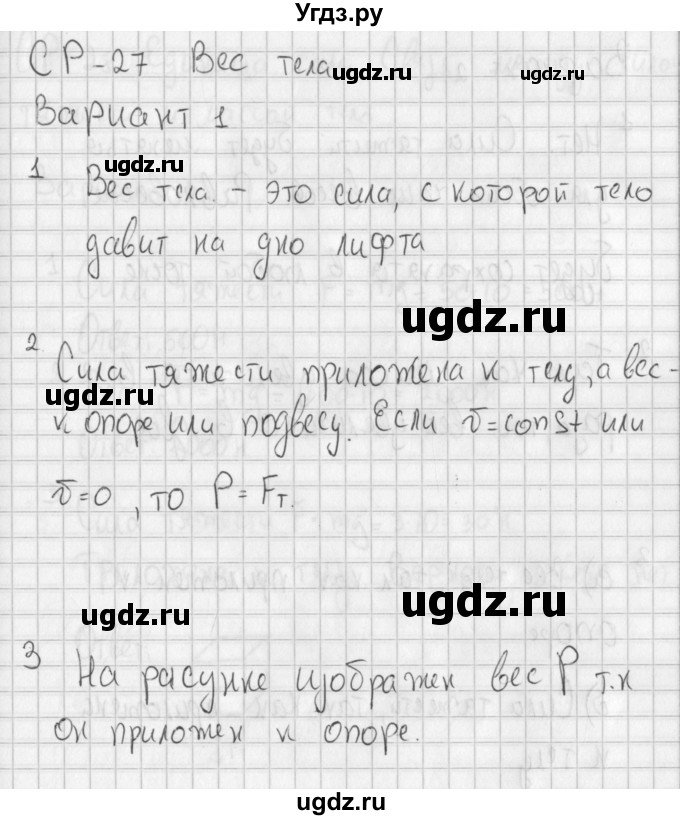 Угдз.ру
СР-27 Вес тела
ugdz.ru ugdz.ru
Вариант 1
ugdz.ru
1 Вес тела. - это сила, с которой тело
давит на дно лифта
ugdz.ru
2 Сила тяжести приложена к телу, а вес -
к опоре или подвесу. Если v̄=const или
v̄=0, то P=Fт.
ugdz.ru ugdz.ru
3 На расунке изображен вес P т.к
он приложен к опоре.
ugdz.ru